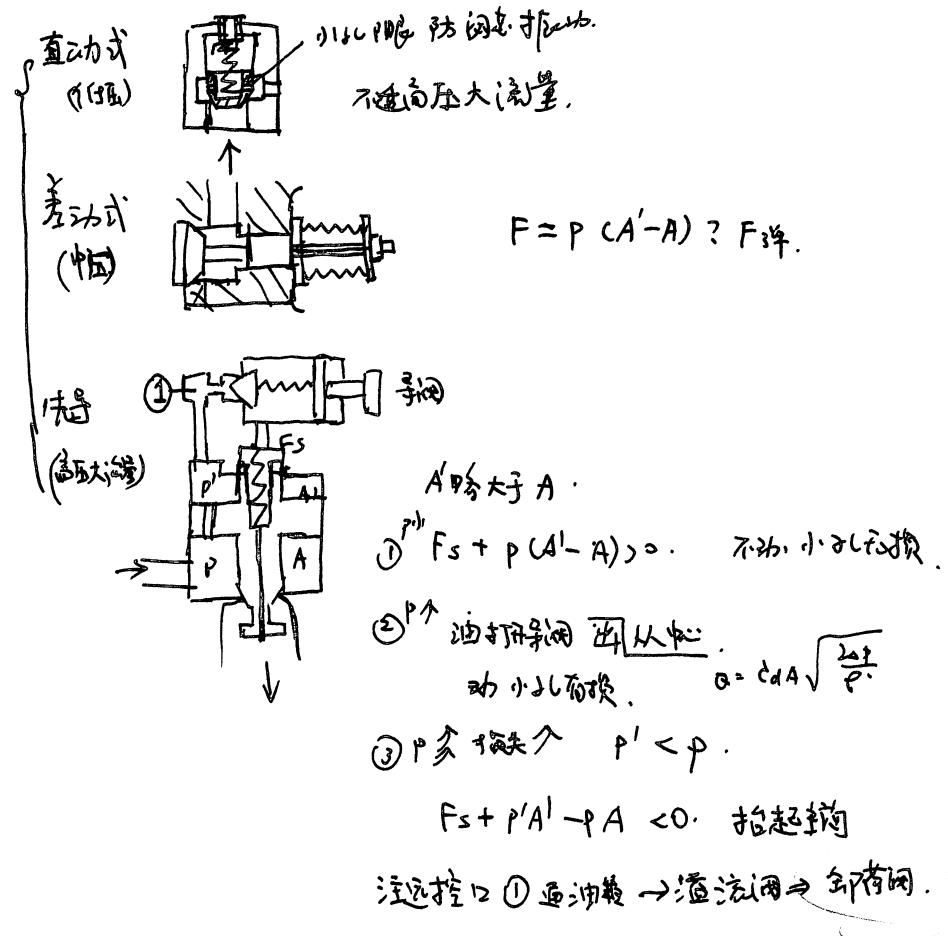 直动式
(低压)
小孔阻眼 防阀芯振动.
不适高压大流量.
差动式
(中压)
F = P (A'-A) ? F弹.
先导
(高压大流量)
①
导阀
Fs
P'
A'
P
A
A'略大于A.
① P小 Fs + P(A'-A)>0. 不动, 小孔无损.
② P↑ 油打开导阀 出从中心.
动 小孔有损.
Q = CdA√(2ΔP/ρ)
③ P↑↑ 损失↑ P' < P.
Fs + P'A' - PA <0. 抬起主阀
注远控口 ① 通油箱 → 溢流阀 ⇒ 卸荷阀.